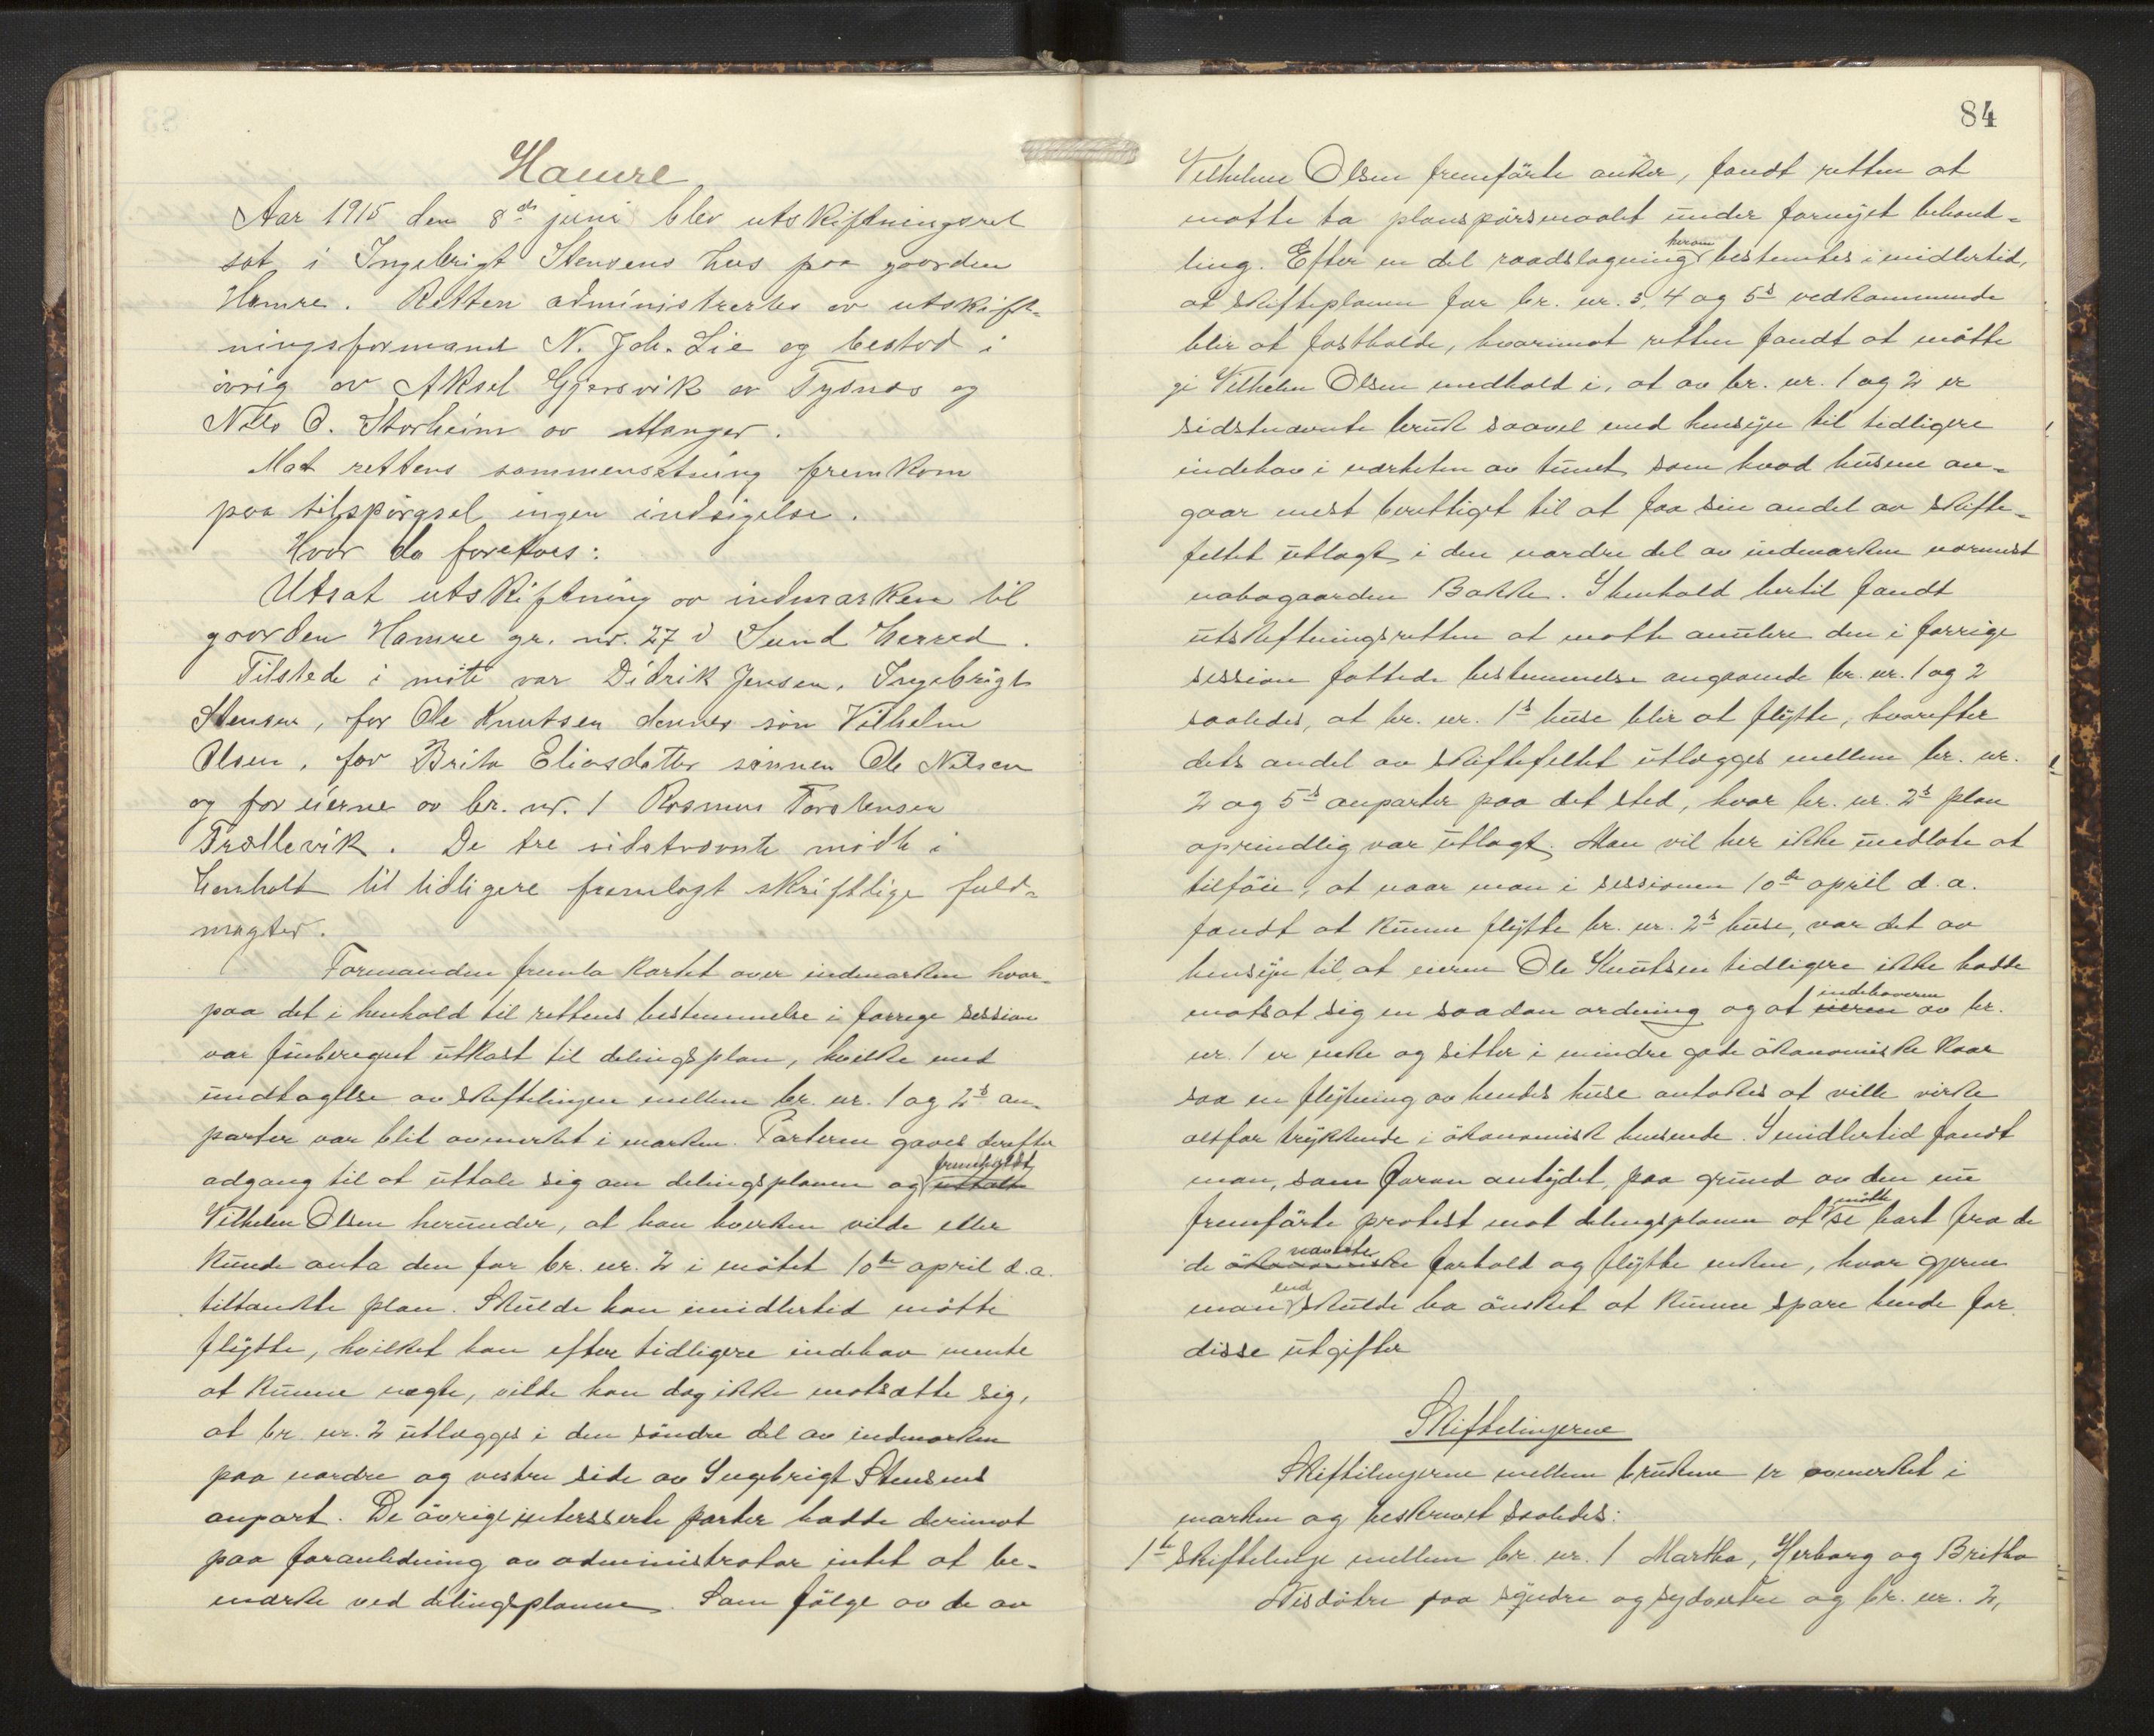 Hamre
Aar 1915 den 8de juni blev utskiftningsret
sat i Ingebrigt Stensens hus paa gaarden
Hamre. Retten administrertes av utskift-
ningsformand N. Joh. Lie og bestod i
övrig av Aksel Gjersvik av Tysnes og
Nils O. Storheim av Manger.
Mot rettens sammensætning fremkom
paa tilspörgsel ingen indsigelse.
Hvor da foretoes:
Utsat utskiftning av indmarken til
gaarden Hamre gr. nr. 27 i Sund herred.
Tilstede i möte var Didrik Jensen, Ingebrigt
Stensen, for Ole Knutsen dennes sön Vilhelm
Olsen, for Brita Eliasdatter sönnen Ole Nilsen
og for eierne av br. nr. 1 Rasmus Torstensen
Trællevik. De tre sidstnævnte mödte i
henhold til tidligere fremlagt skriftlige fuld-
magter.
Formanden fremla kartet over indmarken hvor-
paa det i henhold til rettens bestemmelse i forrige session
var finberegnet utkast til delingsplan, hvilke med
undtagelse av skiftelinjen mellem br. nr. 1 og 2s an-
parter var blit avmerket i marken. Parterne gaves derefter
fremholdt
adgang til at uttale sig om delingsplanen og uttalte
Vilhelm Olsen herunder, at han hverken vilde eller
kunde anta den for br. nr. 2 i mötet 10de april d.a.
tiltænkte plan. Skulde han imidlertid maatte
flytte, hvilket han efter tidligere indehav mente
at kunne negte, vilde han dog ikke motsætte sig,
at br. nr. 2 utlægges i den söndre del av indmarken
paa nordre og vestre side av Ingebrigt Stensens
anpart. De övrige interesserte parter hadde derimot
paa foranledning av administrator intet at be-
merke ved delingsplanen. Som fölge av de av
84
Vilhelm Olsen fremförte anker, fandt retten at
maatte ta planspörsmaalet under fornyet behand-
herom
ling. Efter en del raadslagning bestemtes imidlertid,
at skifteplanen for br. nr. 3, 4 og 5s vedkommende
blir at fastholde, hvorimot retten fandt at maatte
gi Vilhelm Olsen medhold i, at av br. nr. 1 og 2 er
sidstnævnte bruk saavel med hensyn til tidligere
indehav i nærheten av tunet som hvad husene an-
gaar mest berettiget til at faa sin andel av skifte-
feltet utlagt i den nordre del av indmarken nærmest
nabogaarden Bakke. I henhold hertil fandt
utskiftningsretten at maatte anulere den i forrige
session fattede bestemmelse angaaende br. nr. 1 og 2
saaledes, at br. nr. 1s huse blir at flytte, hvorefter
dets andel av skiftefeltet utlægges mellem br. nr.
2 og 5s anparter paa det sted, hvor br. nr. 2s plan
oprindlig var utlagt. Man vil her ikke undlate at
tilföie, at naar man i sessionen 10de april d.a.
fandt at kunne flytte br. nr. 2s huse, var det av
hensyn til at eieren Ole Knutsen tidligere ikke hadde
indehaveren
motsat sig en saadan ordning og at eieren av br.
nr. 1 er enke og sitter i mindre gode ökonomiske kaar
saa en flytning av hendes huse antokes at ville virke
altfor trykkende i ökonomisk henseende. Imidlertid fandt
man, som foran antydet, paa grund av den nu
maatte
fremförte protest mot delingsplanen at se bort fra de
nævnte
de ökonomiske forhold og flytte enken, hvor gjerne
end
man skulde ha önsket at kunne spare hende for
disse utgifter
Skiftelinjerne
Skiftelinjerne mellem brukene er avmerket i
marken og beskrevet saaledes:
1ste skiftelinje mellem br. nr. 1 Martha, Herborg og Britha
Nisdötre paa söndre og sydvestre og br. nr. 2,